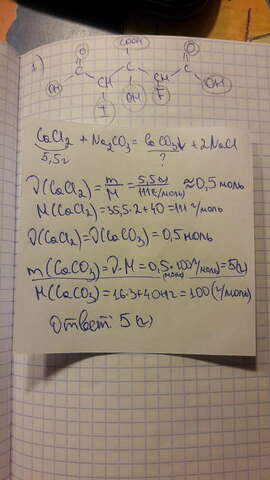 1)
COOH
O O
C C C
OH CH CH OH
I OH F
CaCl2 + Na2CO3 = CaCO3↓ + 2NaCl
5,5г ?
ν(CaCl2) = m/M = 5,5(г)/111(г/моль) ≈ 0,5 моль
M(CaCl2) = 35,5·2+40 = 111 г/моль
ν(CaCl2) = ν(CaCO3) = 0,5 моль
m(CaCO3) = ν·M = 0,5(моль)·100(г/моль) = 5(г)
M(CaCO3) = 16·3+40+12 = 100 (г/моль)
Ответ: 5(г)